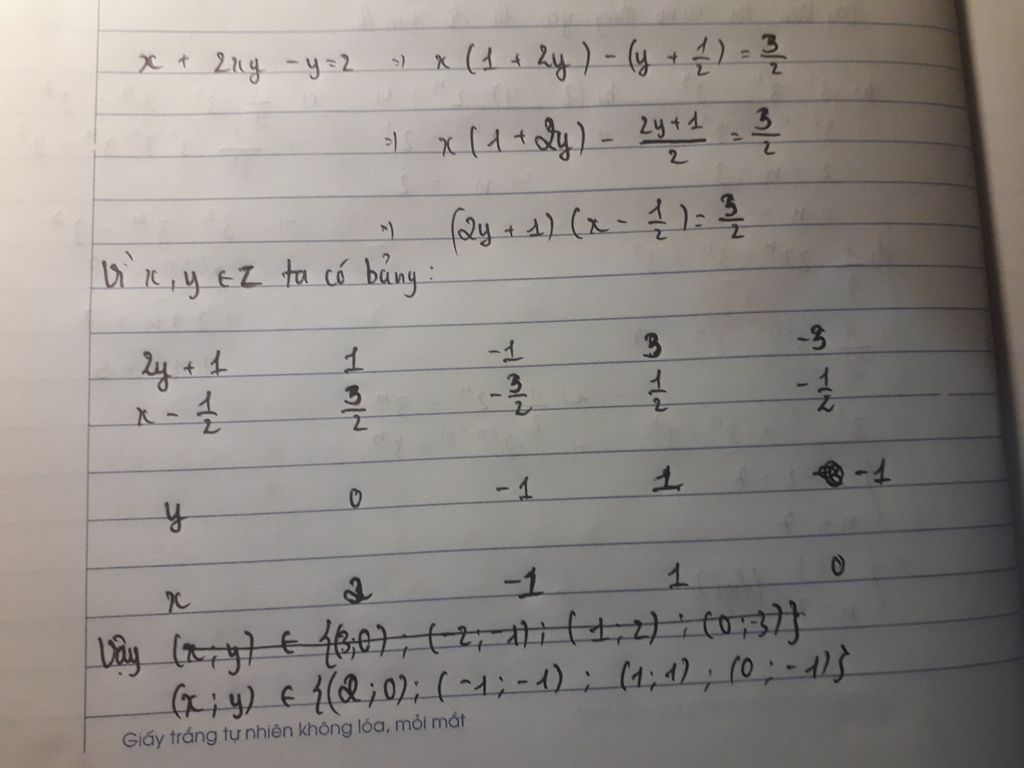 x + 2xy - y = 2 => x(1 + 2y) - (y + 1/2) = 3/2
=> x(1 + 2y) - (2y+1)/2 = 3/2
=> (2y + 1)(x - 1/2) = 3/2
Vì x, y ∈ Z ta có bảng:
2y + 1 1 -1 3 -3
x - 1/2 3/2 -3/2 1/2 -1/2
y 0 -1 1 -1
x 2 -1 1 0
Vậy (x;y) ∈ {(3;0); (-2;-1); (1;2); (0;-3)}
(x;y) ∈ {(2;0); (-1;-1); (1;1); (0;-1)}
Giấy trắng tự nhiên không lóa, mỏi mắt